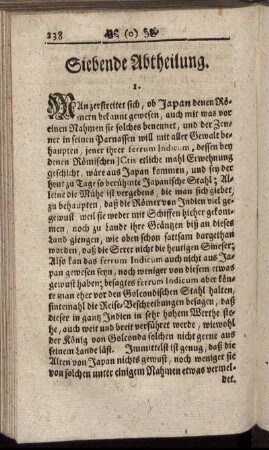 238 (o)
Siebende Abtheilung.
1.
MAn zerstreitet sich, ob Japan denen Rö-
mern bekannt gewesen, auch mit was vor
einen Nahmen sie solches benennet, und der Zeu-
ner in seinen Parnassen will mit aller Gewalt be-
haupten, jener ihrer ferrum Indicum, dessen bey
denen Römischen JCtis etliche mahl Erwehnung
geschicht, wäre aus Japan kommen, und sey der
heut zu Tage so berühmte Japanische Stahl; Al-
leine die Mühe ist vergebens, die man sich giebet,
zu behaupten, daß die Römer von Indien viel ge-
gewust weil sie weder mit Schiffen hieher gekom-
men, noch zu Lande ihre Gräntzen biß an dieses
Land giengen, wie oben schon sattsam dargethan
worden, daß die Seres nicht die heutigen Sineser;
Also kan das ferrum Indicum auch nicht aus Ja-
pan gewesen seyn, noch weniger von diesem etwas
gewust haben; besagtes ferrum Indicum aber kön-
te man eher vor den Golcondischen Stahl halten,
sintemahl die Reise-Beschreibungen besagen, daß
dieser in gantz Indien in sehr hohem Werthe ste-
he, auch weit und breit verführet werde, wiewohl
der König von Golconda solchen nicht gerne aus
seinem Lande läst. Immittelst ist genug, daß die
Alten von Japan nichts gewust, noch weniger sie
von solchen unter einigem Nahmen etwas vermel-
det.